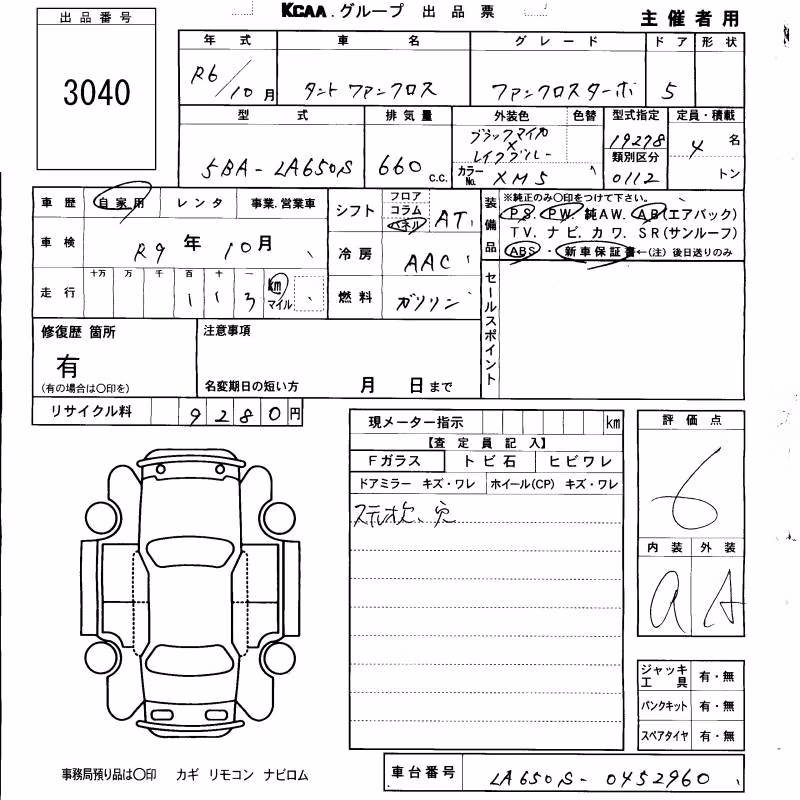 KCAA.グループ 出品票
主催者用
出品番号
3040
年式 車名 グレード ドア 形状
R6/10月 タント ファンクロス ファンクロスターボ 5
型式 排気量 外装色 色替 型式指定 定員・積載
5BA-LA650S 660 c.c.
ブラックマイカ
×
レイクブルー
カラーNo. XM5
19278
類別区分
0112
4 名
トン
車歴 自家用 レンタ 事業.営業車
車検 R9年10月
走行 十万 万 千 百 十 一
113 km
マイル
シフト フロア コラム パネル AT
冷房 AAC
燃料 ガソリン
装備品
※純正のみ〇印をつけて下さい。
PS. PW. 純AW. AB(エアバック)
TV. ナビ. カワ. SR(サンルーフ)
ABS・新車保証書←(注)後日送りのみ
セールスポイント
修復歴 箇所
有
(有の場合は〇印を)
注意事項
名変期日の短い方 月 日まで
リサイクル料 9280円
現メーター指示 km
【査定員記入】
Fガラス トビ石 ヒビワレ
ドアミラー キズ・ワレ ホイール(CP) キズ・ワレ
ステレオ欠、穴
評価点
6
内装 外装
a A
ジャッキ工具 有・無
パンクキット 有・無
スペアタイヤ 有・無
事務局預り品は〇印 カギ リモコン ナビロム
車台番号 LA650S-0452960